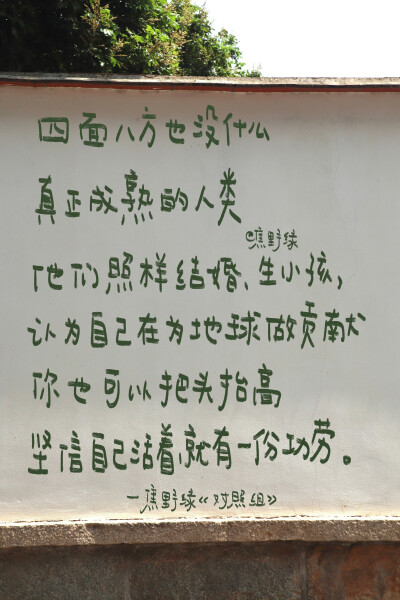 四面八方也没什么
真正成熟的人类
@焦野绿
他们照样结婚、生小孩,
认为自己在为地球做贡献
你也可以把头抬高
坚信自己活着,就有一份功劳。
—焦野绿《对照组》